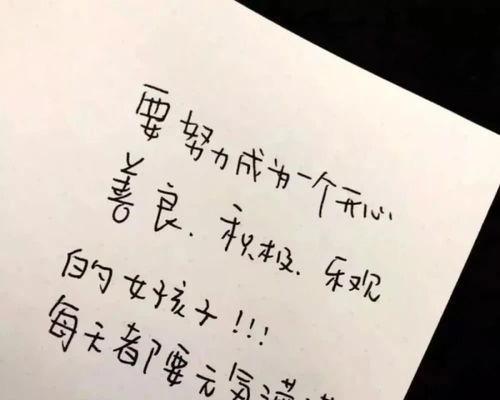 要努力成为一个开心
善良、积极、乐观
的女孩子!!!
每天都要元气满满